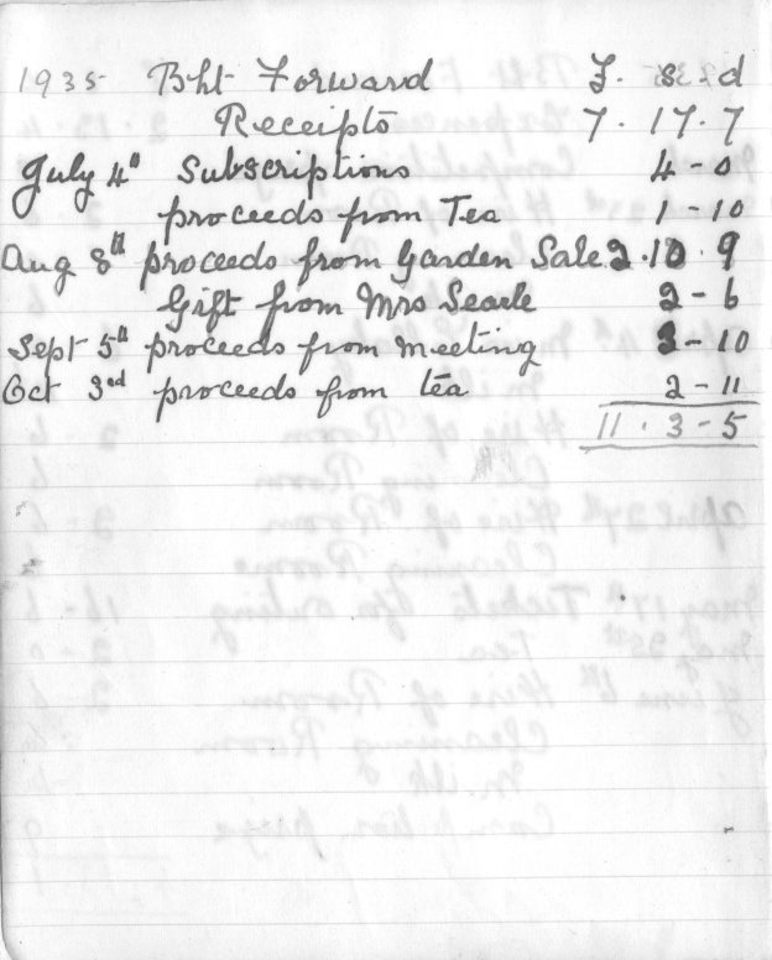 1935 Bht Forward £. s. d
Receipts 7 . 17 . 7
July 4th Subscriptions 4 - 0
proceeds from Tea 1 - 10
Aug 8th proceeds from Garden Sale 2 . 10 . 9
Gift from Mrs Searle 2 - 6
Sept 5th proceeds from meeting 3 - 10
Oct 3rd proceeds from tea 2 - 11
11 . 3 - 5